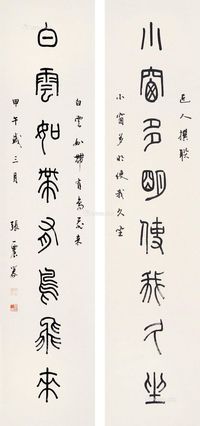 近人撰聯
小窗多明使我久坐
小窗多明使我久坐
白雲如帶有鳥飛來
白雲如帶有鳥飛來
甲午歲三月 張